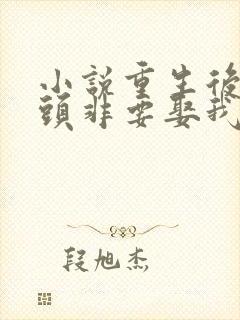 小說重生後
頭非要娶我
段旭杰